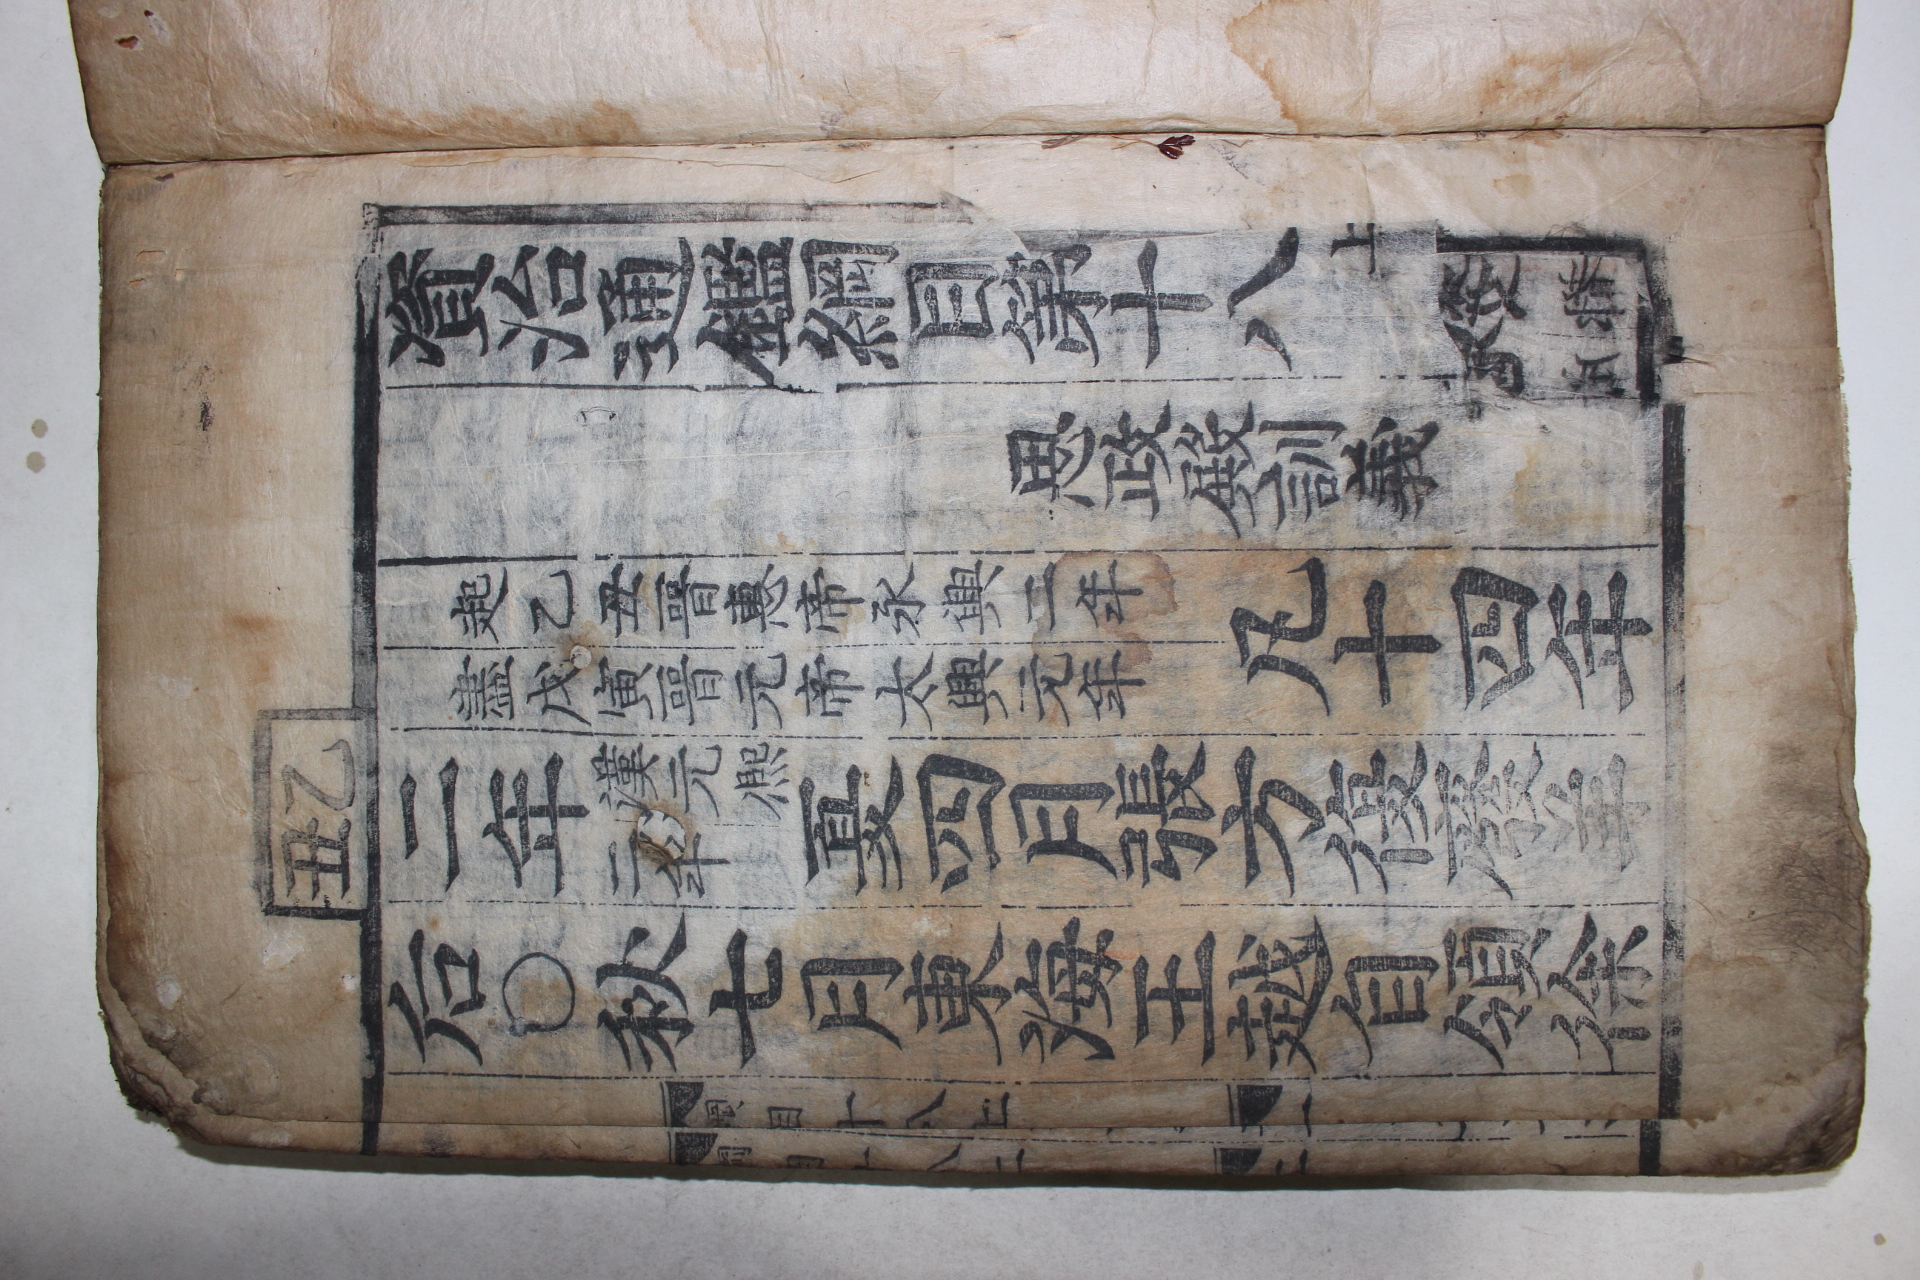 乙丑
資治通鑑綱目第十八上
思政殿訓義
起乙丑晉惠帝永興二年
盡戊寅晉元帝太興元年
凡十四年
二年
漢元熈
二年
夏四月張方復廢羊
后〇秋七月東海王越自領徐
綱目十八上